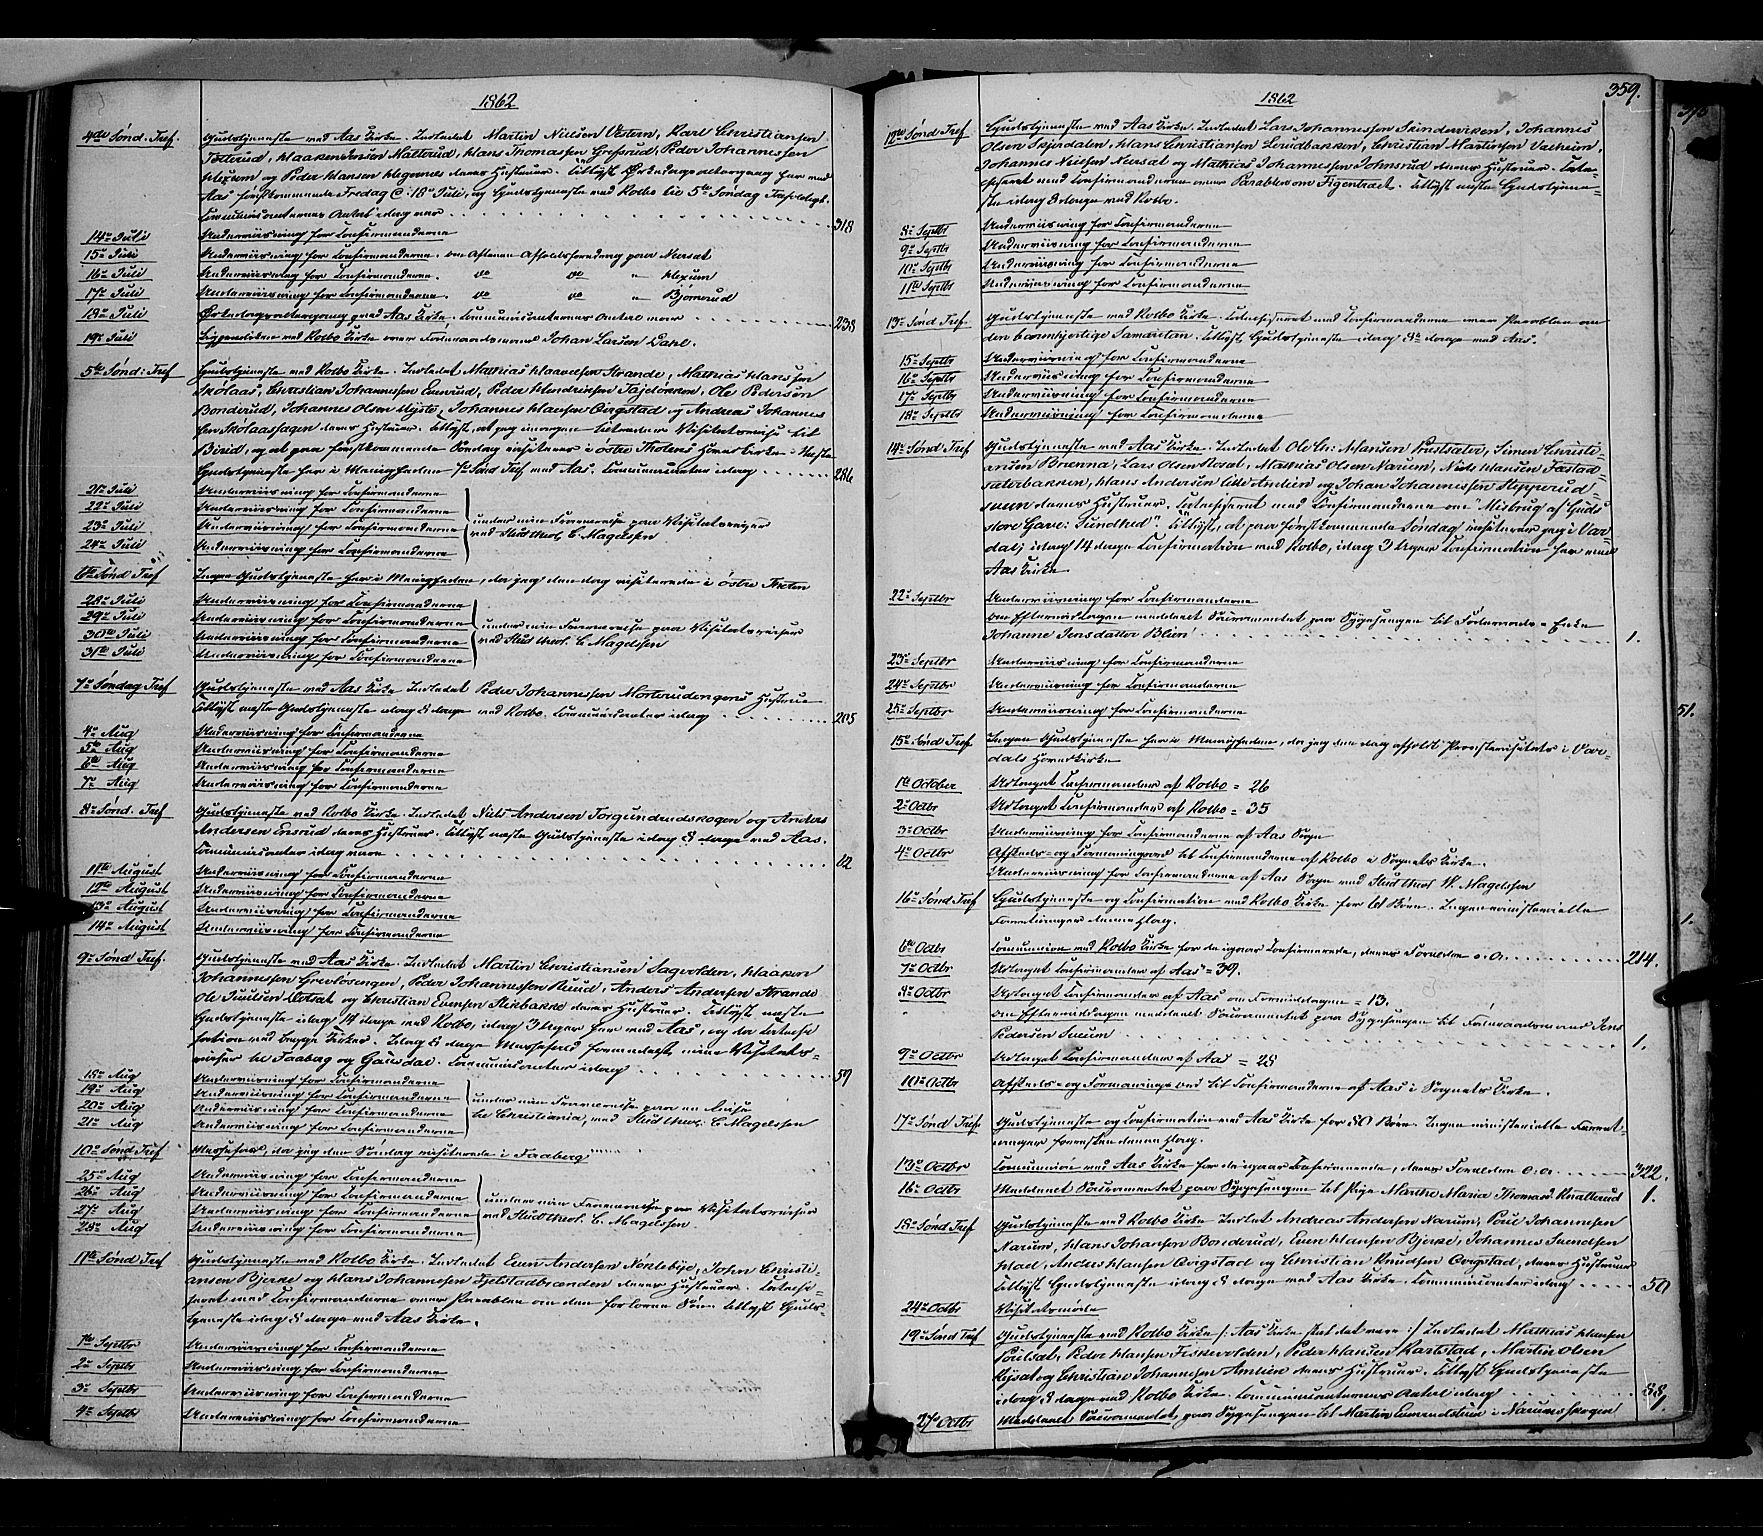 1862
4de Sønd. Tref. Gudstjeneste ved Aas Kirke. Indledet Martin Nielsen Vestern, Karl Christiansen
Totterud, Haaken Jensen Matterud, Hans Thomassen Grefsrud, Peder Johannessen
Hexum og Peder Hansen Hegernes deres Hustruer. Tillyst Ørkedagsaltergang her ved
Aas førstkommende Fredag C: 18de Juli, og Gudstjeneste ved Kolbo til 5te Søndag Trefoldigh.
Communicanternes Antal idag var 318
14de Juli Underviisning for Confirmanderne
15de Juli Underviisning for Confirmanderne. om Aftenen Afholdsforedrag paa Nersæt
16de Juli Underviisning for Confirmanderne. do do " Hexum
17de Juli Underviisning for Confirmanderne. do do " Bjørnerud
18de Juli Ørkedagsaltergang ved Aas Kirke. Communicanternes Antal var 238
19de Juli Liigprædiken ved Kolbo Kirke over Føderaadsmand Johan Larsen Dahl.
5te Sønd: Tref Gudstjeneste ved Kolbo Kirke. Indledet Mathias Haavelsen Strande, Mathias Hanssen
Skolaas, Christian Johannessen Eenrud, Peder Hendriksen Tajeløkken, Ole Pedersen
Bonderud, Johannes Olsen Nyste, Johannes Hansen Ovrgstad og Andreas Johannes
sen Skolaassagen deres Hustruer. Tillyst, at jeg imorgen tiltræder Visitatsreise til
Birid, og at paa førstkommende Søndag visiterer i østre Thotens Hovedkirke. Næste
Gudstjeneste her i Menigheden 7de Sønd Tref ved Aas. Communicanter idag 286
21de Juli Underviisning for Confirmanderne
22de Juli Underviisning for Confirmanderne
23de Juli Underviisning for Confirmanderne under min Fraværelse paa Visitatsreiser
24de Juli Underviisning for Confirmanderne ved Stud theol. C. Magelssen
6te Sønd Tref Ingen Gudstjeneste her i Menigheden, da jeg den dag visiterede i østre Thoten
28de Juli Underviisning for Confirmanderne
29de Juli Underviisning for Confirmanderne
30te Juli Underviisning for Confirmanderne under min Fraværelse paa Visitatsreiser
31te Juli Underviisning for Confirmanderne ved Stud theol. C. Magelssen
7de Søndag Tref Gudstjeneste ved Aas Kirke Indledet Peder Johannessen Morterudengens Hustrue
Tillyst næste Gudstjeneste idag 8 dage ved Kolbo. Communicanter idag 205
4de Aug Underviisning for Confirmanderne
5te Aug Underviisning for Confirmanderne
6te Aug Underviisning for Confirmanderne
7de Aug Underviisning for Confirmanderne
8de Sønd. Tref Gudstjeneste ved Kolbo Kirke. Indledet Niels Andersen Torgundrudskogen og Anders
Andersen Ensrud deres Hustruer. Tillyst næste Gudstjeneste idag 8 dage ved Aas.
Communicanter idag vare 12
11te August Underviisning for Confirmanderne
12te August Underviisning for Confirmanderne
13de August Underviisning for Confirmanderne
14de August Underviisning for Confirmanderne
9de Sønd Tref. Gudstjeneste ved Aas Kirke. Indledet Martin Christiansen Sagvolden, Haaken
Johannessen Grevlørengen, Peder Johannessen Ruud, Anders Andersen Strande
Ole Juulsen Dotsæt og Christian Evensen Stexbakke deres Hustruer. Tillyst næste
Gudstjeneste idag 14 dage ved Kolbo, idag 3 Uger her ved Aas, og da Catechi
sation ved begge Kirker. Idag 8 dage Messefald formedelst mine Visitats-
reiser til Faabærg og Gausdal. Communicanter idag 59
18de Aug Underviisning for Confirmanderne
19de Aug Underviisning for Confirmanderne
20de Aug Underviisning for Confirmanderne under min Fraværelse paa en Reise
21de Aug Underviisning for Confirmanderne til Christiania, ved Stud theol. C Magelssen
10de Sønd Tref Messefald, da jeg den Søndag visiterede i Faaberg
25de Aug Underviisning for Confirmanderne
26de Aug Underviisning for Confirmanderne
27de Aug Underviisning for Confirmanderne under min Fraværelse paa Visitatsreiser
28de Aug Underviisning for Confirmanderne ved Stud theol. C. Magelssen.
11te Sønd Tref Gudstjeneste ved Kolbo Kirke. Indledet Even Andersen Nøklebye, John Christi-
ansen Bjerke og Hans Johannesen Fjelstadbraaden deres Hustruer. Catechi-
seret med Confirmanderne over Parablen om den forlorne Søn. Tillyst Guds-
tjeneste idag 8 dage ved Aas Kirke.
1te Septbr Underviisning for Confirmanderne
2de Septbr Underviisning for Confirmanderne
3de Septbr Underviisning for Confirmanderne
4de Septbr Underviisning for Confirmanderne
1862
359.
12te Sønd Tref Gudstjeneste ved Aas Kirke. Indledet Lars Johannessen Skinderviken, Johannes
Olsen Skjerdalen, Hans Christiansen Lerudbakken, Christian Martinsen Valheim,
Johannes Nielsen Nersæt og Mathias Johannessen Johnsrud deres Hustruer. Cate-
chiseret med Confirmanderne over Parablen om Figentræet. Tillyst næste Gudstjene-
ste idag 8 dage ved Kolbo.
8de Septbr Underviisning for Confirmanderne
9de Septbr Underviisning for Confirmanderne
10de Septbr Underviisning for Confirmanderne
11te Septbr Underviisning for Confirmanderne
13de Sønd Tref Gudstjeneste ved Kolbo Kirke. Catechiseret med Confirmanderne over Parablen om
den barmhjertige Samaritan. Tillyst Gudstjeneste idag 8te dage ved Aas.
15de Septbr Underviisning for Confirmanderne
16de Septbr Underviisning for Confirmanderne
17de Septbr Underviisning for Confirmanderne
18de Septbr Underviisning for Confirmanderne
14de Sønd Tref Gudstjeneste ved Aas Kirke. Indledet Ole Chr: Hansen Prestsæter, Simen Christi-
ansen Brenna, Lars Olsen Rosæt, Mathias Olsen Narum, Niels Hansen Fæstad-
sæterbakken, Hans Andersen lille Amlien og Johan Johannessen Klipperud
muen deres Hustruer. Catechiseret med Confirmanderne om "Misbrug af Guds
store Gave: Sundhed". Tillyst, at paa førstkommende Søndag visiterer jeg i Var-
dal; idag 14 dage Confirmation ved Kolbo, idag 3 Uger Confirmation her ved
Aas Kirke
22de Septbr Underviisning for Confirmanderne
om Eftermiddagen meddeelt Sacramentet paa Sygesengen til Føderaads-Enke
Johanne Jensdatter Blien 1.
23de Septbr Underviisning for Confirmanderne
24de Septbr Underviisning for Confirmanderne
25de Septbr Underviisning for Confirmanderne
15de Sønd Tref Ingen Gudstjeneste her i Menigheden, da jeg den dag afholdt Provstevisitats i Var-
dals Hovedkirke
1te October Udtaget Confirmander af Kolbo = 26
2de Octbr Udtaget Confirmander af Kolbo = 35
3de Octbr Underviisning for Confirmanderne af Aas Sogn
4de Octbr Afskeds- og Formaningsord til Confirmanderne af Kolbo i Sognets Kirke.
Underviisning for Confirmanderne af Aas Sogn ved Stud theol W. Magelssen
16de Sønd Tref Gudstjeneste og Confirmation ved Kolbo Kirke for 61 Børn. Ingen ministerielle
Forretninger denne Dag.
6te Octbr Communion ved Kolbo Kirke for de igaar Confirmerede, deres Forældre o.a. 214.
7de Octbr Udtaget Confirmander af Aas = 39.
8de Octbr Udtaget Confirmander af Aas om Formiddagen = 13.
om Eftermiddagen meddeelt Sacramentet paa Sygesengen til Føderaadsmand Jens
Pedersen Sneum 1.
9de Octbr Udtaget Confirmander af Aas = 28
10de Octbr Afskeds- og Formaningsord til Confirmanderne af Aas i Sognets Kirke.
17de Sønd Tref. Gudstjeneste og Confirmation ved Aas Kirke for 80 Børn. Ingen ministerielle Forret-
ninger foruden denne Dag.
13de Octbr Communion ved Aas Kirke for de igaar Confirmerede, deres Forældre o.a. 322.
16de Octbr Meddeelt Sacramentet paa Sygesengen til Pige Marthe Maria Thomasd Knatterud 1.
18de Sønd Tref Gudstjeneste ved Kolbo Kirke Indledet Andreas Andersen Narum, Poul Johannesen
Narum, Hans Johansen Bonderud, Even Hansen Bjerke, Johannes Svendsen
Hlad, Anders Hansen Ovrgstad og Christian Knudsen Ovrgstad, deres Hustruer
Tillyst Gudstjeneste idag 8 dage ved Aas Kirke. Communicanter idag 50
24de Octbr Visitatsmøde
19de Sønd Tref Gudstjeneste ved Kolbo Kirke /: Aas Kirke skal det være :/ Indledet Mathias Hansen
Poulsæt, Peder Hansen Fiskevolden, Peder Hansen Kartstad, Martin Olsen
Lysæt og Christian Johannesen Amlien deres Hustruer. Tillyst Gudstjeneste
idag 8 dage ved Kolbo Kirke. Communicanternes Antal idag 88
27de Octbr Meddeelt Sacramentet paa Sygesengen til Martin Evensstuen i Narumsskogen 1
51.
1.